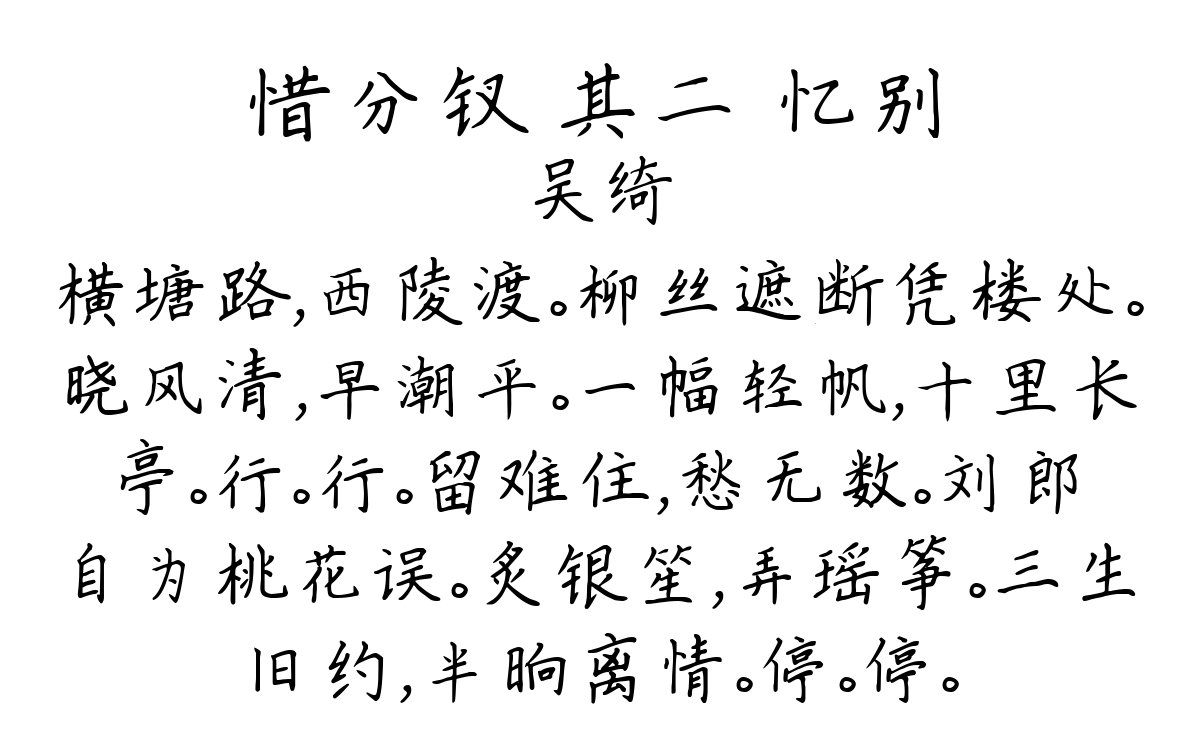 惜分钗 其二 忆别
吴绮
横塘路,西陵渡。柳丝遮断凭楼处。
晓风清,早潮平。一幅轻帆,十里长
亭。行。行。留难住,愁无数。刘郎
自为桃花误。炙银笙,弄瑶筝。三生
旧约,半晌离情。停。停。